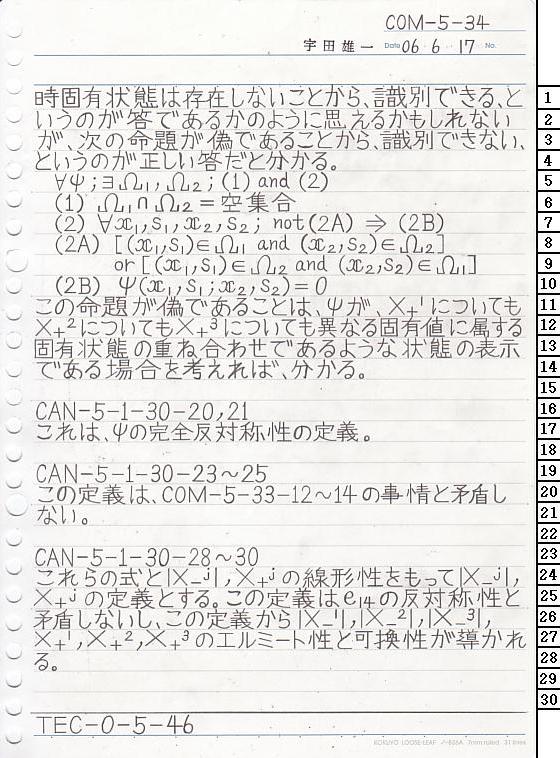 COM-5-34
宇田雄一 Date 06・6・17 No.
時固有状態は存在しないことから、識別できる、と
いうのが答であるかのように思えるかもしれない
が、次の命題が偽であることから、識別できない、
というのが正しい答だと分かる。
∀ψ;∃Ω₁,Ω₂;(1) and (2)
(1) Ω₁∩Ω₂=空集合
(2) ∀x₁,s₁,x₂,s₂; not(2A) ⇒ (2B)
(2A) [(x₁,s₁)∈Ω₁ and (x₂,s₂)∈Ω₂]
or [(x₁,s₁)∈Ω₂ and (x₂,s₂)∈Ω₁]
(2B) ψ(x₁,s₁;x₂,s₂)=0
この命題が偽であることは、ψが、X₊¹についても
X₊²についてもX₊³についても異なる固有値に属する
固有状態の重ね合わせであるような状態の表示
である場合を考えれば、分かる。
CAN-5-1-30-20,21
これは、ψの完全反対称性の定義。
CAN-5-1-30-23~25
この定義は、COM-5-33-12~14の事情と矛盾し
ない。
CAN-5-1-30-28~30
これらの式と|X₋ʲ|,X₊ʲの線形性をもって|X₋ʲ|,
X₊ʲの定義とする。この定義はe₁₄の反対称性と
矛盾しないし、この定義から|X₋¹|,|X₋²|,|X₋³|,
X₊¹,X₊²,X₊³のエルミート性と可換性が導かれ
る。
TEC-0-5-46
KOKUYO LOOSE-LEAF ノ-836A 7mm ruled 31 lines
1
2
3
4
5
6
7
8
9
10
11
12
13
14
15
16
17
18
19
20
21
22
23
24
25
26
27
28
29
30